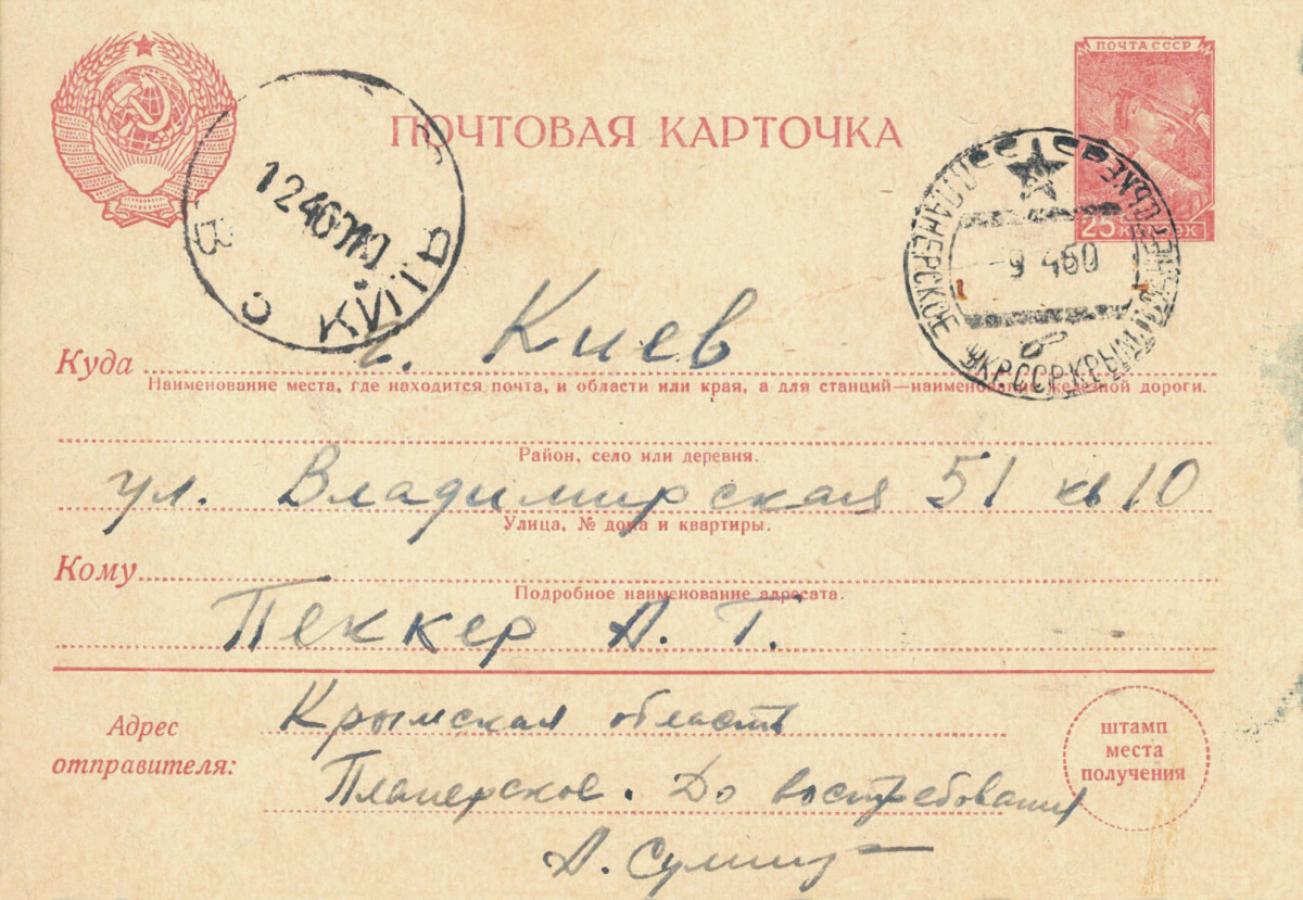 ПОЧТА СССР
ПОЧТОВАЯ КАРТОЧКА
25 КОПЕЕК
12 4 60
КИЇВ
9 4 60
ПЛАНЕРСКОЕ
УКР. ССР КРЫМ
Куда г. Киев
Наименование места, где находится почта, и области или края, а для станций—наименование железной дороги.
Район, село или деревня.
ул. Владимирская 51 кв 10
Улица, № дома и квартиры.
Кому
Подробное наименование адресата.
Пеккер А. Т.
Адрес
отправителя:
Крымская область
Планерское. До востребования
А.
штамп
места
получения